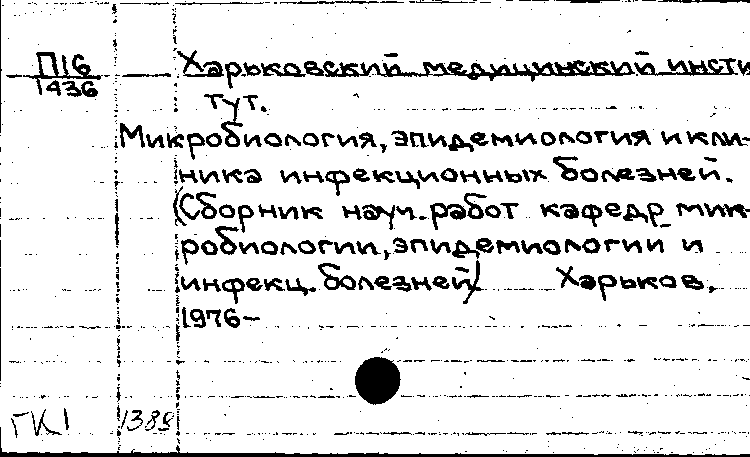 П16 Харьковский медицинский инсти
1436 тут.
Микробиология, эпидемиология и кли-
ника инфекционных болезней.
(Сборник науч. работ кафедр мик-
робиологии, эпидемиологии и
инфекц. болезней) Харьков,
1976–
ГК1 1389